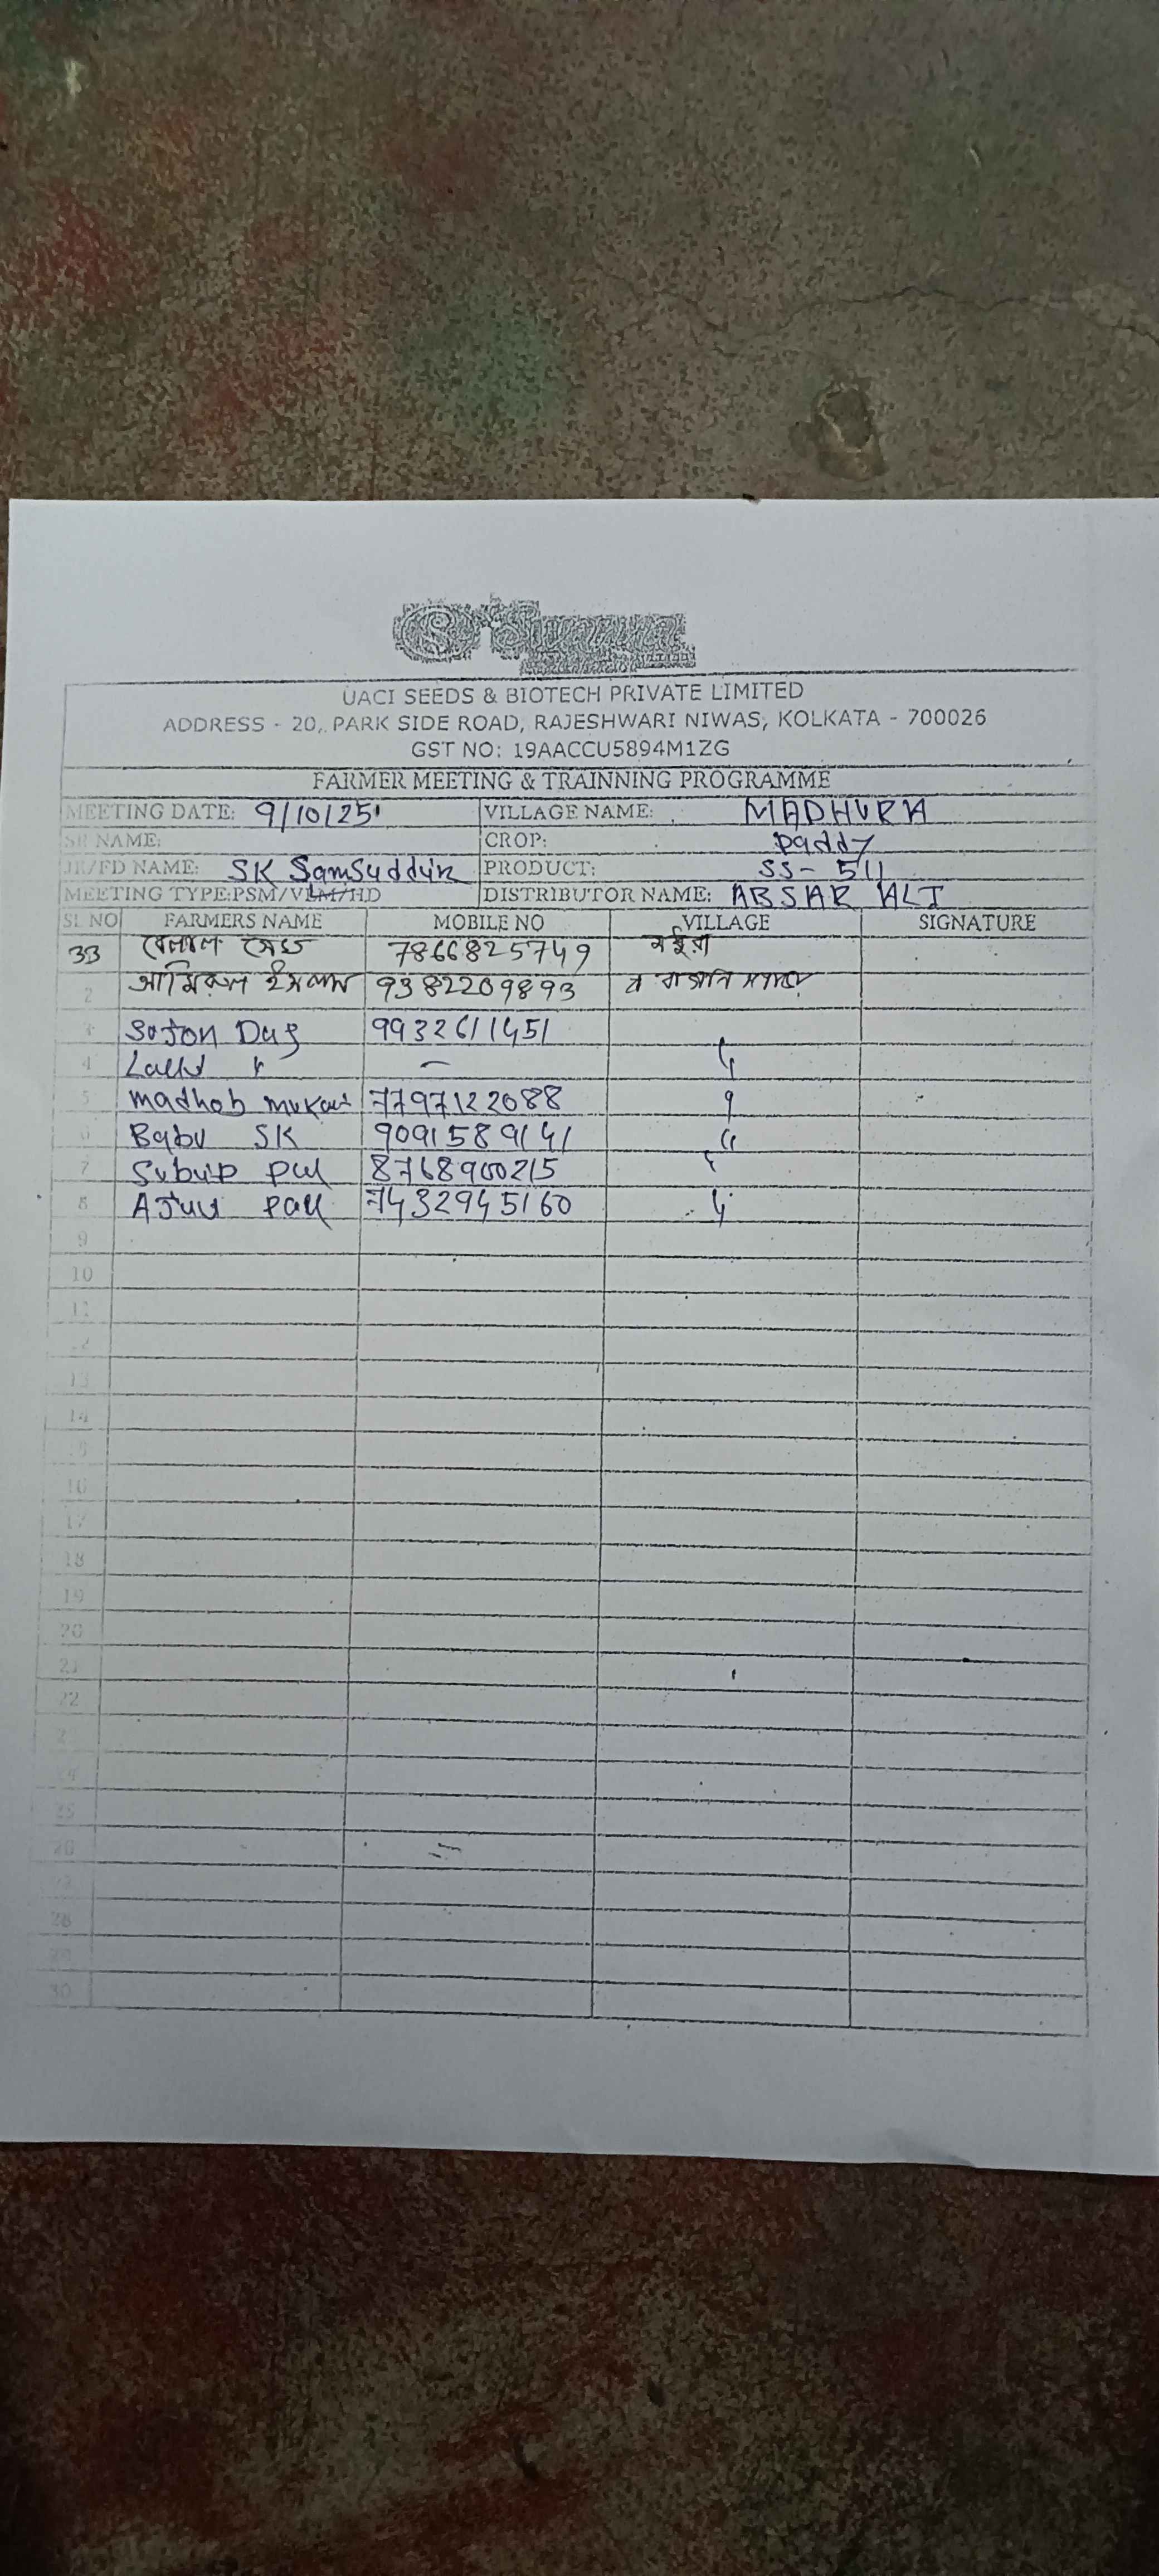 UACI SEEDS & BIOTECH PRIVATE LIMITED
ADDRESS - 20, PARK SIDE ROAD, RAJESHWARI NIWAS, KOLKATA - 700026
GST NO: 19AACCU5894M1ZG
FARMER MEETING & TRAINNING PROGRAMME
MEETING DATE: 9/10/25 VILLAGE NAME: MADHURA
SR NAME: CROP: Paddy
JR/FD NAME: SK Samsuddin PRODUCT: SS- 511
MEETING TYPE:PSM/VLM/HD DISTRIBUTOR NAME: ABSAR ALI
SL NO FARMERS NAME MOBILE NO VILLAGE SIGNATURE
33 বেলাল সেখ 7866825749
2 আমিরুল ইসলাম 9382209893
3 Sojon Das 9932611451
4 —
5 madhob 7797122088
6 Babu SK 9091589141
7 8768900215
8 7432945160
9
10
11
12
13
14
15
16
17
18
19
20
21
22
23
24
25
26
27
28
29
30